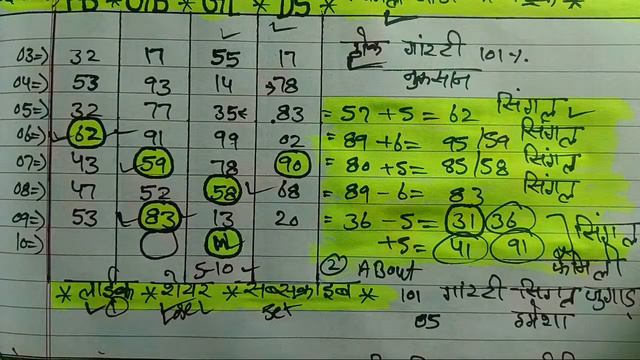 FB * GTB * GTL * DS *
03=) 32 17 55 17
04=) 53 93 14 78
05=) 32 77 35 83 = 57 + 5 = 62 सिंगल
06=) 62 91 99 02 = 89 + 6 = 95/59 सिंगल
07=) 43 59 78 90 = 80 + 5 = 85/58 सिंगल
08=) 47 52 58 68 = 89 - 6 = 83 सिंगल
09=) 53 83 13 20 = 36 - 5 = 31 36 सिंगल
10=) M +5 = 41 91 फैमिली
5-10
गांरटी 101%
नुकसान
② ABout
* लाईक * शेयर * सब्सक्राइब *
101 गांरटी सिंगल जुगाड़
05 हमेशा